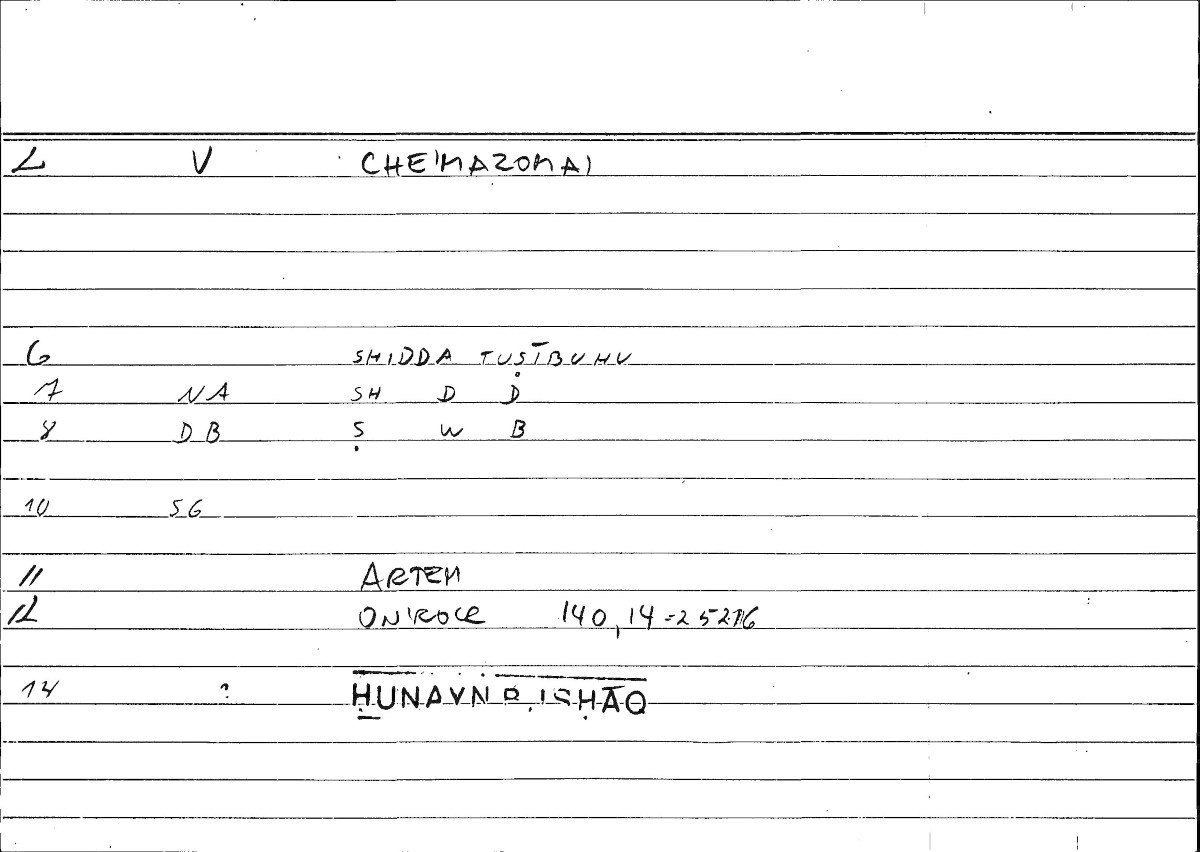 2 V CHE'MAZOMAI
6 SHIDDA TUṢĪBUHU
7 NA SH D D
8 DB Ṣ W B
10 SG
11 ARTEM
12 ONIROCR 140,14=252
14 ? ḤUNAYN B. ISḤĀQ